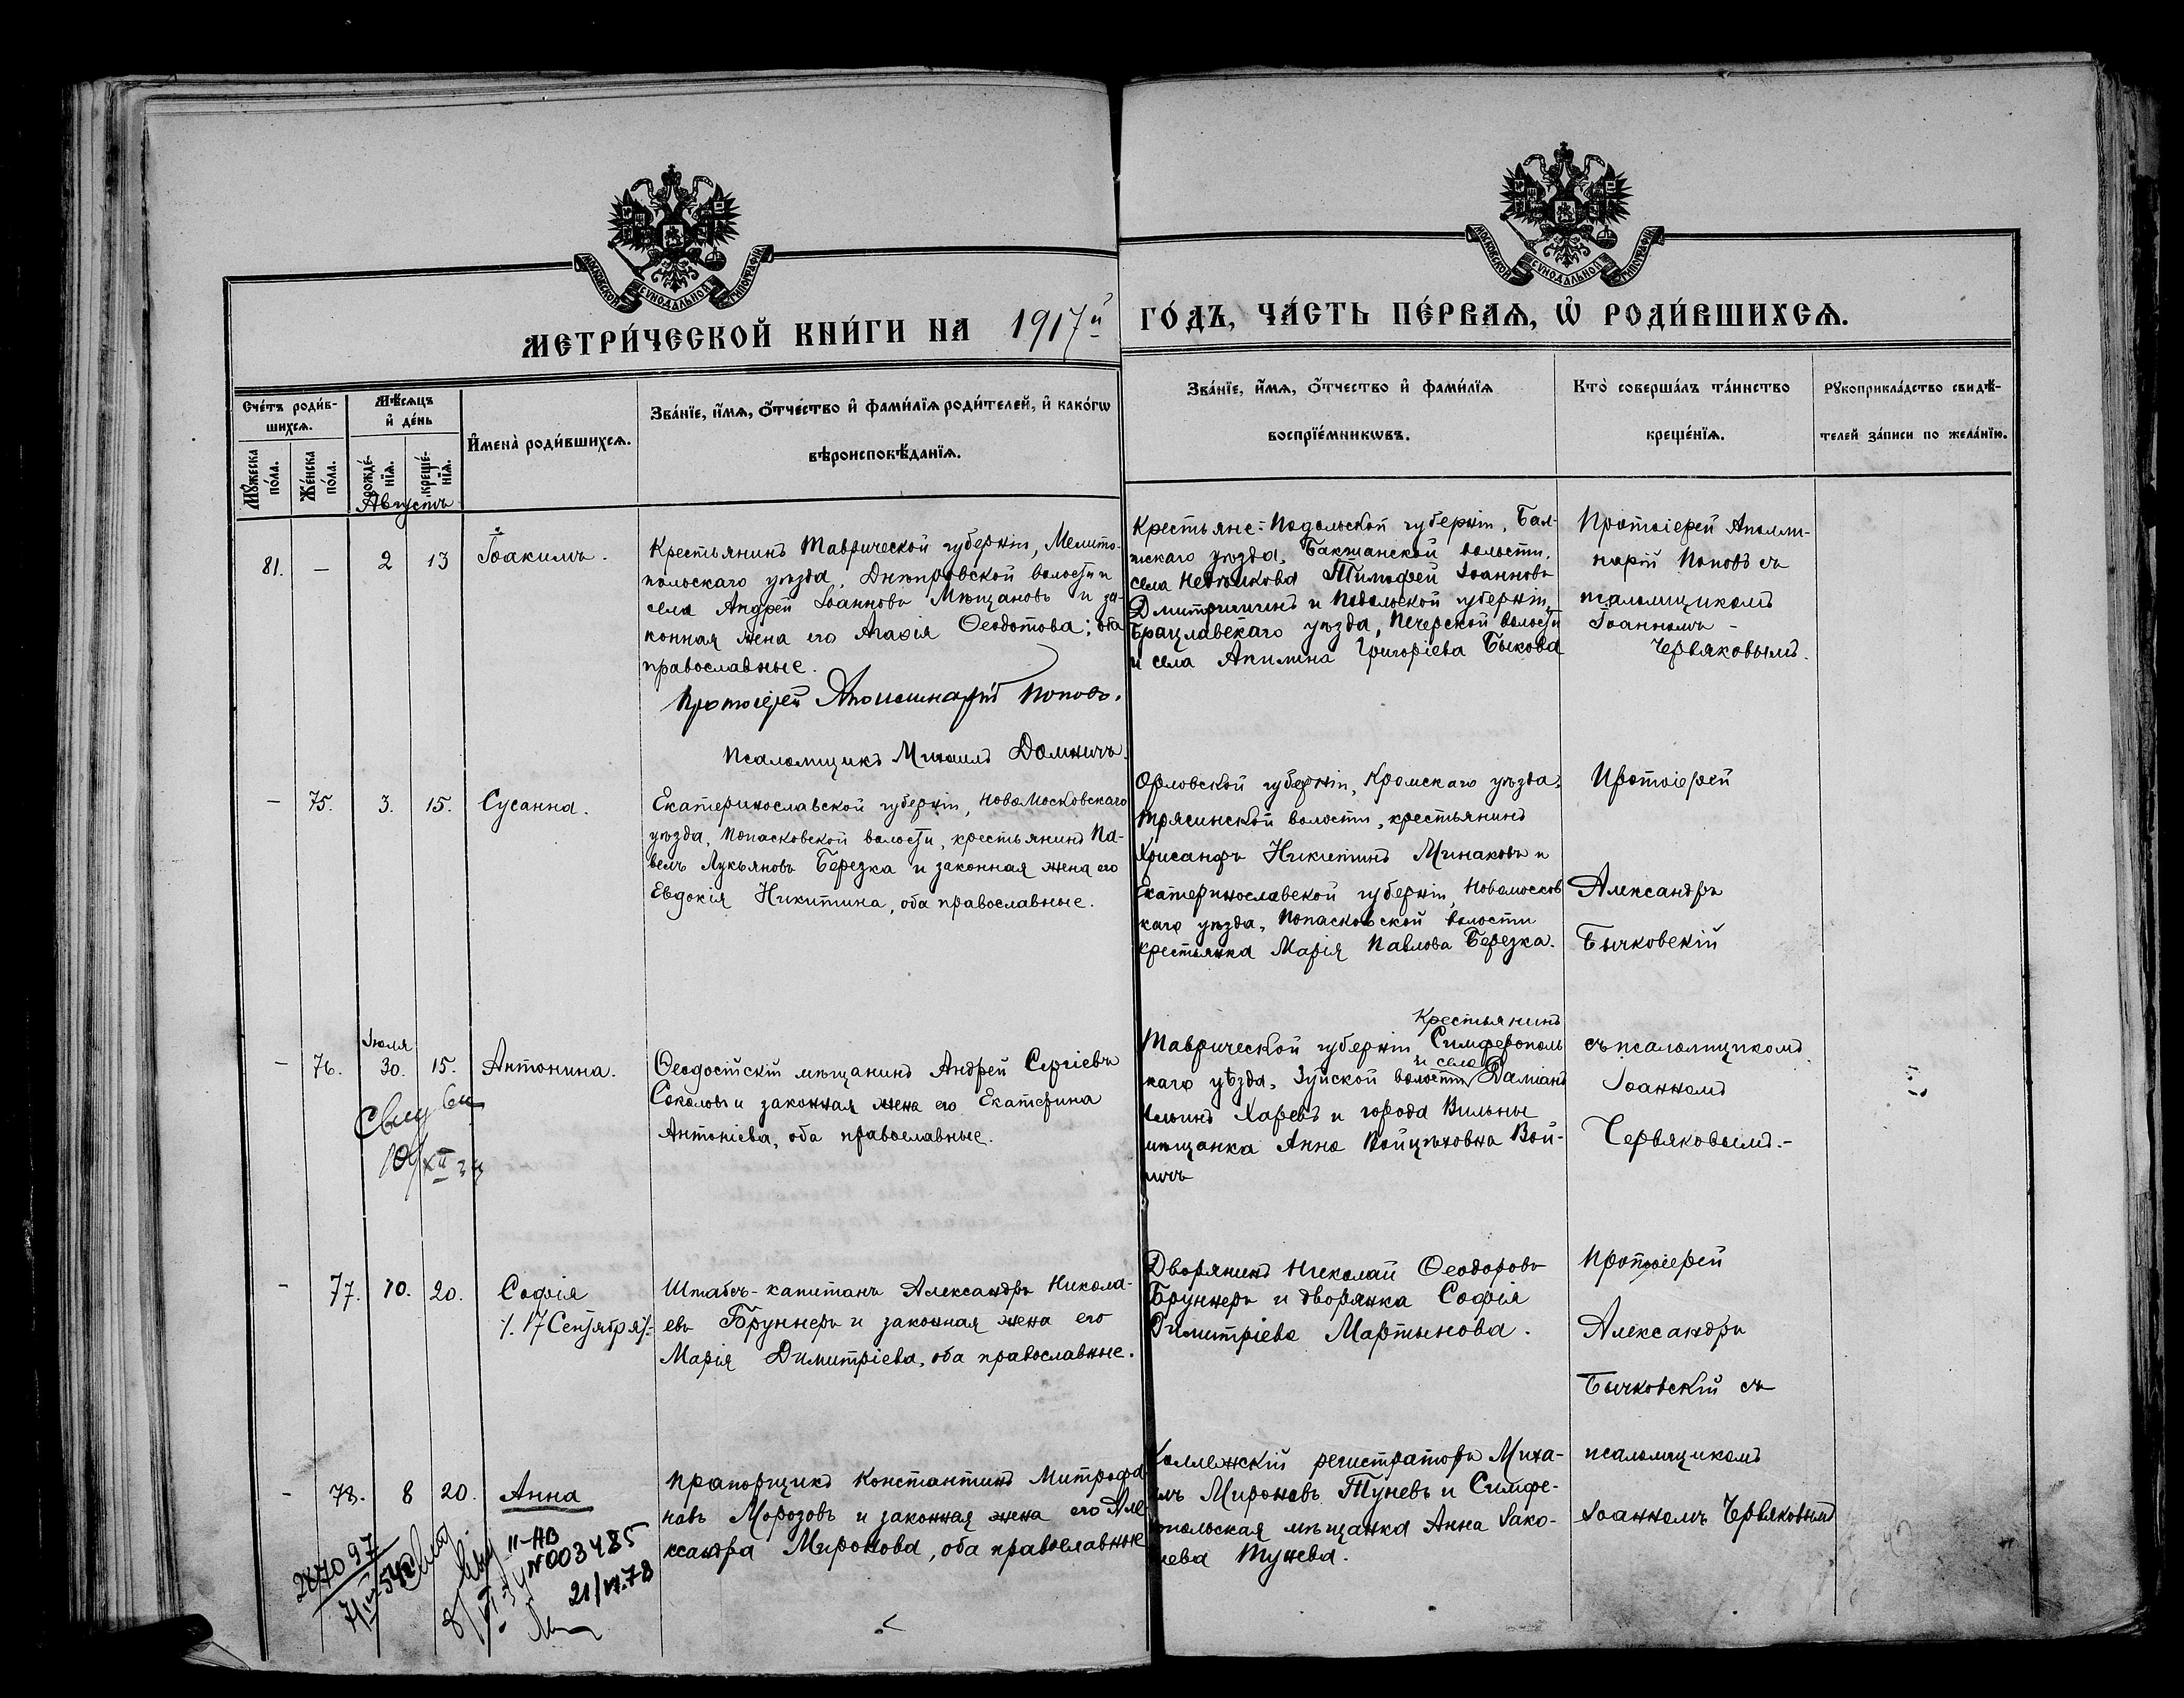 МОСКОВСКОЙ СУНОДАЛЬНОЙ ТИПОГРАФІИ
МОСКОВСКОЙ СУНОДАЛЬНОЙ ТИПОГРАФІИ
МЕТРИ́ЧЕСКОЙ КНИ́ГИ НА 1917й ГО́ДЪ, ЧА́СТЬ ПЕ́РВАѦ, Ѡ҆ РОДИ́ВШИХСѦ.
Сче́тъ роди́в-
шихсѧ.
Мꙋ́жеска
по́ла.
Же́нска
по́ла.
Мѣ́сѧцъ
и҆ де́нь
рожде́-
нїѧ.
креще́-
нїѧ.
И҆мена̀ роди́вшихсѧ.
Зва́нїе, и҆́мѧ, ѻ҆́тчество и҆ фами́лїѧ роди́телей, и҆ како́гѡ
вѣроисповѣ́данїѧ.
Зва́нїе, и҆́мѧ, ѻ҆́тчество и҆ фами́лїѧ
воспрїе́мникѡвъ.
Кто̀ соверша́лъ та́инство
креще́нїѧ.
Рꙋкоприкла́дство свидѣ́-
телей за́писи по жела́нїю.
Августъ
81.
—
2
13
Іоакимъ.
Крестьянинъ Таврической губерніи, Мелито-
польскаго уѣзда, Днѣпровской волости и
села Андрей Іоанновъ Мѣщановъ и за-
конная жена его Агафія Ѳеодотова; оба
православные.
Протоіерей Аполлинарій Поповъ.
Псаломщикъ Михаилъ Домничъ.
Крестьяне: Подольской губерніи, Бал-
тскаго уѣзда, Бакшанской волости,
села Недѣлкова Тимофей Іоанновъ
Дмитришинъ и Подольской губерніи,
Брацлавскаго уѣзда, Печерской волости
и села Акилина Григоріева Быкова
Протоіерей Аполли-
нарій Поповъ съ
псаломщикомъ
Іоанномъ
Червяковымъ.
—
75.
3.
15.
Сусанна.
Екатеринославской губерніи, Новомосковскаго
уѣзда, Попасковской волости, крестьянинъ Па-
велъ Лукьяновъ Березка и законная жена его
Евдокія Никитина, оба православные.
Орловской губерніи, Кромскаго уѣзда,
волости, крестьянинъ
Хрисанфъ Никитинъ Минаковъ и
Екатеринославской губерніи, Новомосков
скаго уѣзда, Попасковской волости
крестьянка Марія Павлова Березка.
Протоіерей
Александръ
Бычковскій
—
76.
Іюля
30.
15.
Антонина.
10/XII 34
Ѳеодосійскій мѣщанинъ Андрей Сергіевъ
Соколовъ и законная жена его Екатерина
Антоніева, оба православные.
Крестьянинъ
Таврической губерніи Симферополь
скаго уѣзда, Зуйской волости и села Даміанъ
Ильинъ Харевъ и города Вильны
мѣщанка Анна Войцѣховна Вой-
съ псаломщикомъ
Іоанномъ
Червяковымъ.-
—
77.
10.
20.
Софія
/. 17 Сентября/.
Штабсъ-капитанъ Александръ Никола-
евъ Бруннеръ и законная жена его
Марія Димитріева, оба православные.
Дворянинъ Николай Ѳеодоровъ
Бруннеръ и дворянка Софія
Димитріева Мартынова.
Протоіерей
Александръ
Бычковскій съ
—
78.
8
20.
Анна
Прапорщикъ Константинъ Митрофа
новъ Морозовъ и законная жена его Але
ксандра Миронова, оба православные
Коллежскій регистраторъ Миха-
илъ Мироновъ Туневъ и Симфе-
ропольская мѣщанка Анна Іако-
влева Тунева.
псаломщикомъ
Іоанномъ Червяковымъ
II-АВ
№003485
21/VI.78